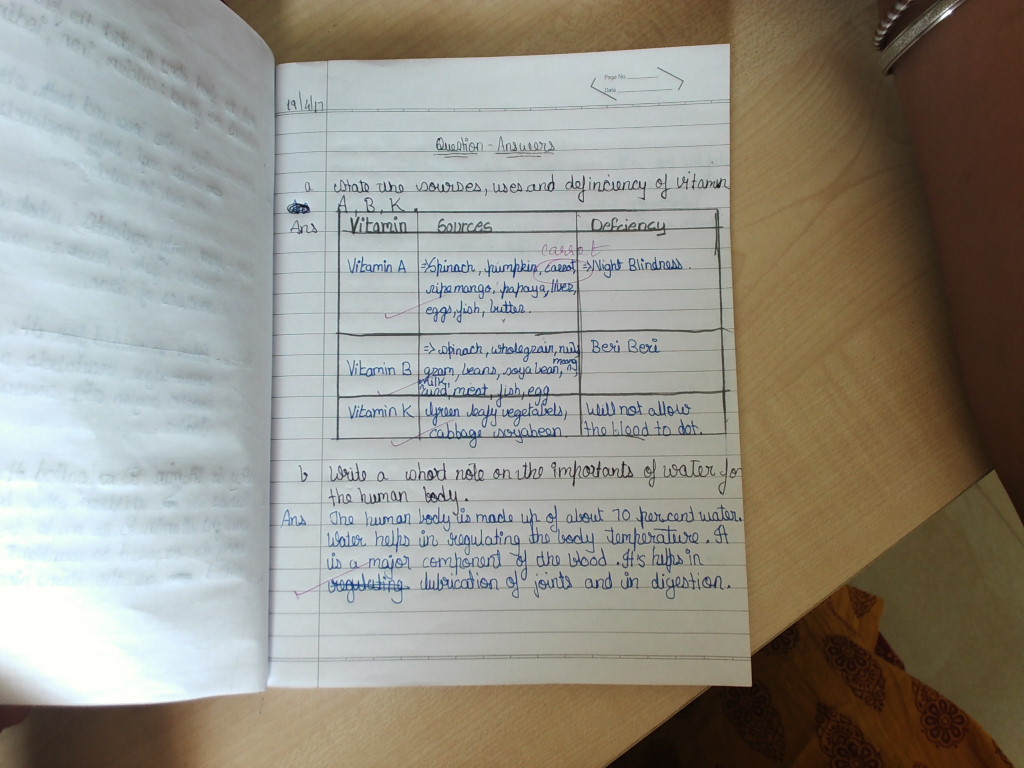 Page No.
Date
19/4/17
Question - Answers
a State the sourses, uses and definciency of vitamin
A, B, K.
Ans
Vitamin Sources Defciency
carrot
Vitamin A ⇒ Spinach, pumpkin, carrot, ⇒ Night Blindness.
ripe mango, papaya, liver,
eggs, fish, butter.
⇒ spinach, wholegrain, nuts Beri Beri
Vitamin B gram, beans, soyabean, moong
milk, meat, fish, egg
Vitamin K Green leafy vegetabels, Will not allow
cabbage soyabeen. the blood to clot.
b Write a short note on the importants of water for
the human body.
Ans The human body is made up of about 70 per cent water.
Water helps in regulating the body temperature. It
is a major component of the blood. It's helps in
regulating lubrication of joints and in digestion.